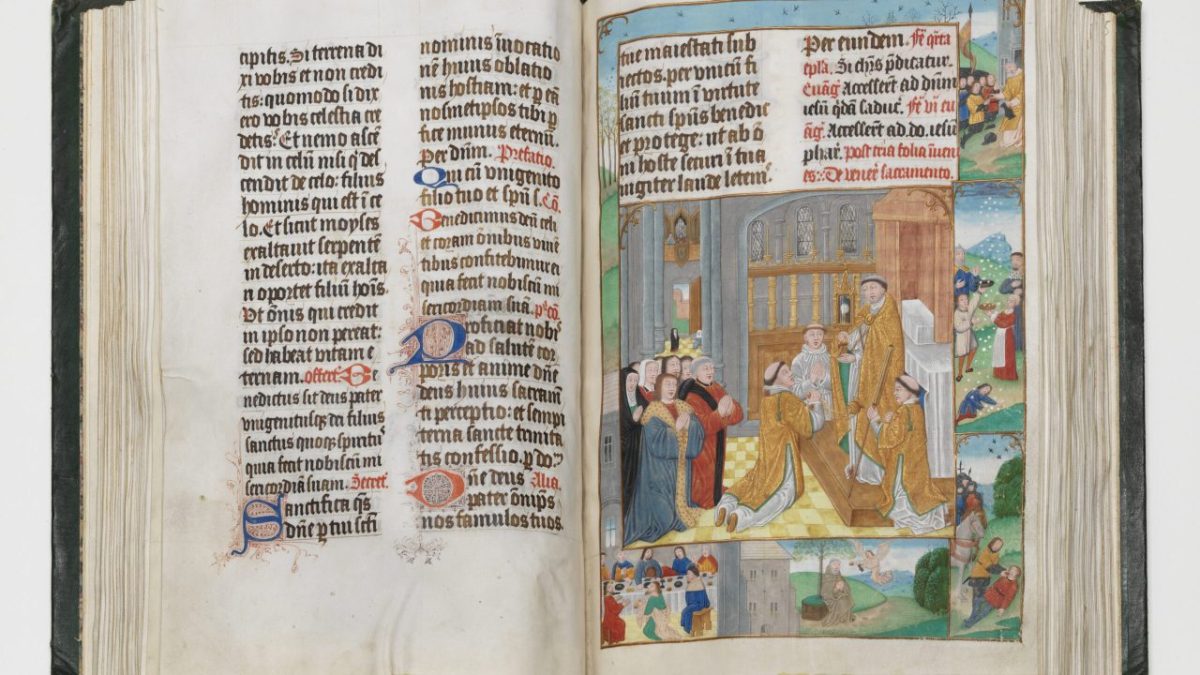 cipitis. Si terrena di
xi vobis et non credi
tis: quomodo si dix
ero vobis celestia cre
detis? Et nemo ascē
dit in celū nisi q̄ des
cendit de celo: filius
hominis qui est ī ce
lo. Et sicut moyses
exaltauit serpentē
in deserto: ita exalta
ri oportet filiū hoīs.
Vt oīnis qui credit
in ipso non pereat:
sed habeat vitam e
ternam. offert. Be
nedictus sit deus pater
vnigenitusq; dei filius
sanctus quoq; spiritus
quia fecit nobiscū mi
sericordiā suam. Secret.
Sanctifica q̄s
dn̄e p tui scti
nominis īuocatio
nē huius oblatio
nis hostiam: et p eā
nosmetipsos tibi p
fice munus eterni.
Per dn̄m. Prefatio.
Qui cū vnigenito
filio tuo et spū s. Cō.
Benedicimus deū celi
et coram ōnibus viuē
tibus confitebimur ei
quia fecit nobiscū mi
sericordiam suā. p̄ cō.
Proficiat nobis
ad salutē cor
poris et anime dn̄e
deus huius sacram̄
ti perceptio: et sempi
terna sancte trinita
tis confessio. p do.
Dn̄e deus Alia.
pater ōnips
nos famulos tuos
tue maiestati sub
iectos. per vnicum fi
lium tuum ī virtute
sancti spūs benedic
et protege: ut ab ō
ni hoste securi ī tua
iugiter laude letem̄.
Per eundem. Fē q̄rta
ep̄la. Si chr̄s p̄dicatur.
Euāg. Accesserūt ad dn̄m
iesū q̄dā saduc̄. Fē vi eu
āg. Accesserūt. ad. do. iesū
phar̄. Post tria folia īuen
es: De vener̄ sacramento.